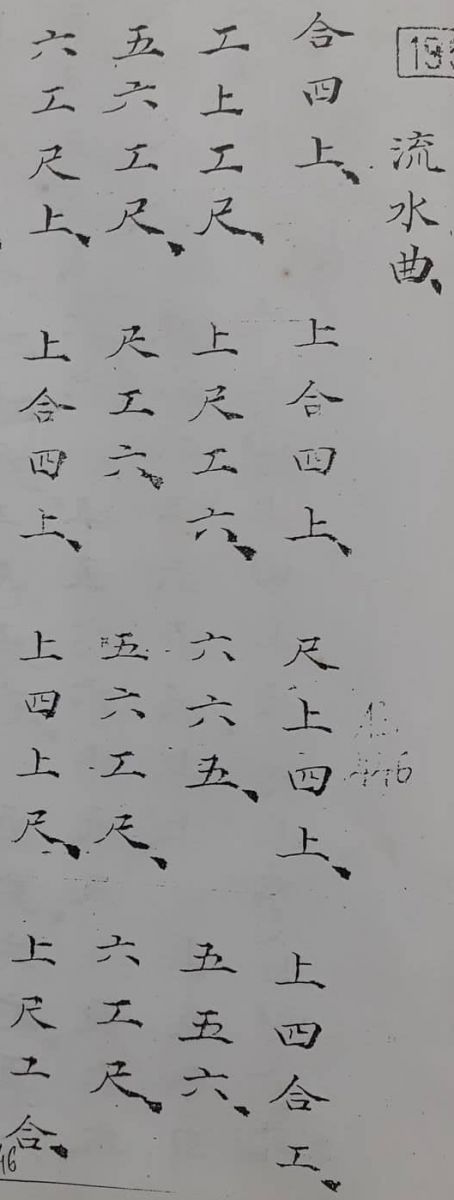 流水曲、
合四上、 上合四上、 尺上四上、 上四合工、
工上工尺、 上尺工六、 六六五、 五五六、
五六工尺、 尺工六、 五六工尺、 六工尺、
六工尺上、 上合四上、 上四上尺、 上尺工合、